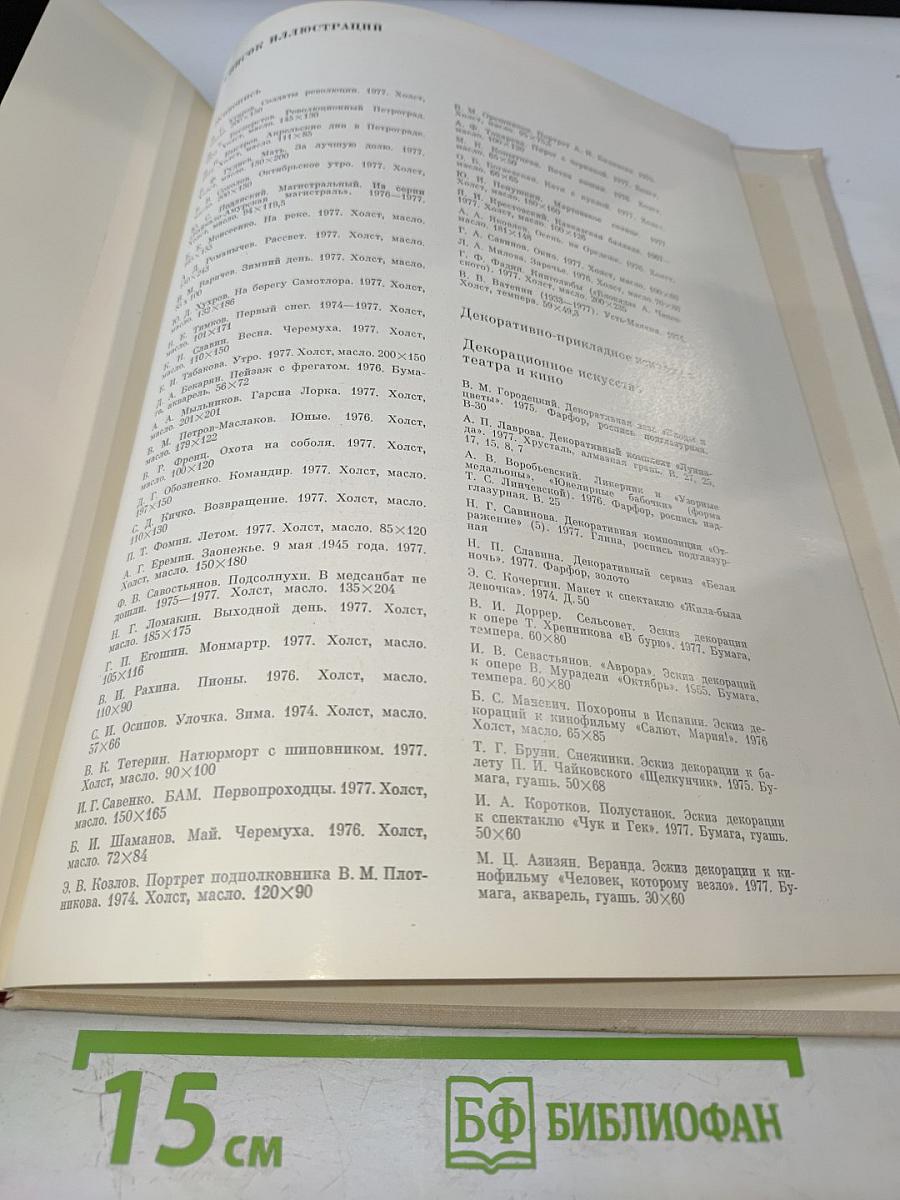 СПИСОК ИЛЛЮСТРАЦИЙ
Солдаты революции. 1977. Холст,
Революционный Петроград.
Холст, масло. 145×130
Апрельские дни в Петрограде.
Холст, масло. 111×85
Мать. За лучшую долю. 1977.
масло. 150×200
Октябрьское утро. 1977. Холст,
200×150
Магистральный. Из серии
магистраль». 1976—1977.
масло. 94×119,5
Моисеенко. На реке. 1977. Холст, масло.
Романычев. Рассвет. 1977. Холст, масло.
М. Варичев. Зимний день. 1977. Холст, масло.
Ю. Д. Хухров. На берегу Самотлора. 1977. Холст,
масло. 132×186
Н. Е. Тимков. Первый снег. 1974—1977. Холст,
масло. 101×171
К. И. Славин. Весна. Черемуха. 1977. Холст,
масло. 110×150
Е. И. Табакова. Утро. 1977. Холст, масло. 200×150
Л. А. Бекарян. Пейзаж с фрегатом. 1976. Бума-
га, акварель. 56×72
А. А. Мыльников. Гарсиа Лорка. 1977. Холст,
масло. 201×201
В. М. Петров-Маслаков. Юные. 1976. Холст,
масло. 179×122
В. Р. Френц. Охота на соболя. 1977. Холст,
масло. 100×120
Д. Г. Обозненко. Командир. 1977. Холст, масло.
197×150
С. Д. Кичко. Возвращение. 1977. Холст, масло.
110×130
П. Т. Фомин. Летом. 1977. Холст, масло. 85×120
А. Г. Еремин. Заонежье. 9 мая 1945 года. 1977.
Холст, масло. 150×180
Ф. В. Савостьянов. Подсолнухи. В медсанбат не
дошли. 1975—1977. Холст, масло. 135×204
Н. Г. Ломакин. Выходной день. 1977. Холст,
масло. 185×175
Г. П. Егошин. Монмартр. 1977. Холст, масло.
105×116
В. И. Рахина. Пионы. 1976. Холст, масло.
110×90
С. И. Осипов. Улочка. Зима. 1974. Холст, масло.
57×66
В. К. Тетерин. Натюрморт с шиповником. 1977.
Холст, масло. 90×100
И. Г. Савенко. БАМ. Первопроходцы. 1977. Холст,
масло. 150×165
Б. И. Шаманов. Май. Черемуха. 1976. Холст,
масло. 72×84
Э. В. Козлов. Портрет подполковника В. М. Плот-
никова. 1974. Холст, масло. 120×90
В. М. Орешников. Портрет А. Н.
Холст, масло.
А. Ф. Пирог с 1977. Холст,
масло. 100×120
М. К. Ветка 1976. Холст,
масло. 65×50
О. Б. Богаевская. Катя с куклой. 1977. Холст,
масло. 66×65
Ю. И. Пенушкин. Мартовское солнце. 1977.
Холст, масло. 180×160
Я. И. Крестовский. Кавказская баллада.
1977. Холст, масло.
А. А. Яковлев. Осень на Оредеже. 1976. Холст,
масло. 181×148
Г. А. Савинов. Окно. 1977. Холст, масло.
Л. А. Милова. Заречье. 1976. Холст, масло.
Г. Ф. Фадин. Кинголюбы
ского). 1977. Холст, масло. 200×235
В. В. Ватенин (1933—1977). Усть-Мания.
Холст, темпера. 59×49,5
Декоративно-прикладное
Декорационное искусство
театра и кино
В. М. Городецкий. Декоративная ваза
цветы». 1975. Фарфор, роспись подглазурная.
В-30
А. П. Лаврова. Декоративный комплект «Луна-
да». 1977. Хрусталь, алмазная грань. В. 27, 25,
17, 15, 8, 7
А. В. Воробьевский. Ликерник и «Узорные
медальоны», «Ювелирные бабочки» (форма
Т. С. Линчевской). 1976. Фарфор, роспись над-
глазурная. В. 25
Н. Г. Савинова. Декоративная композиция «От-
ражение» (5). 1977. Глина, роспись подглазур-
ная
Н. П. Славина. Декоративный сервиз «Белая
ночь». 1977. Фарфор, золото
Э. С. Кочергин. Макет к спектаклю «Жила-была
девочка». 1974. Д. 50
В. И. Доррер. Сельсовет. Эскиз декорации
к опере Т. Хренникова «В бурю». 1977. Бумага,
темпера. 60×80
И. В. Севастьянов. «Аврора». Эскиз декораций
к опере В. Мурадели «Октябрь». 1965. Бумага,
темпера. 60×80
Б. С. Маневич. Похороны в Испании. Эскиз де-
кораций к кинофильму «Салют, Мария!». 1976
Холст, масло. 65×85
Т. Г. Бруни. Снежинки. Эскиз декорации к ба-
лету П. И. Чайковского «Щелкунчик». 1975. Бу-
мага, гуашь. 50×68
И. А. Коротков. Полустанок. Эскиз декорации
к спектаклю «Чук и Гек». 1977. Бумага, гуашь.
50×60
М. Ц. Азизян. Веранда. Эскиз декорации к ки-
нофильму «Человек, которому везло». 1977. Бу-
мага, акварель, гуашь. 30×60
15 см
БФ БИБЛИОФАН